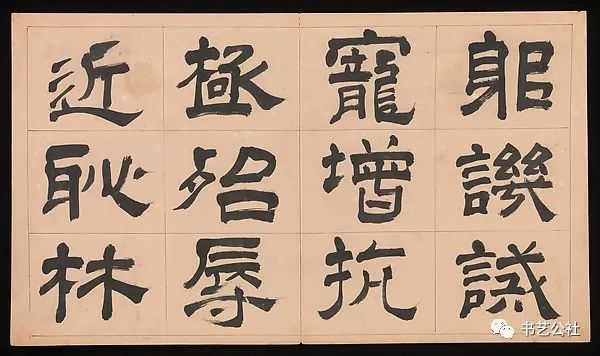 躳譏誡
寵增抗
極殆辱
近恥林
书艺公社